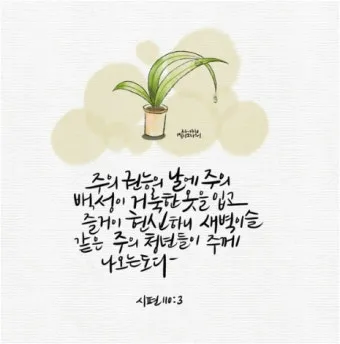 주의 권능의 날에 주의
백성이 거룩한 옷을 입고
즐거이 헌신하니 새벽이슬
같은 주의 청년들이 주께
나오는도다-
시편 110:3